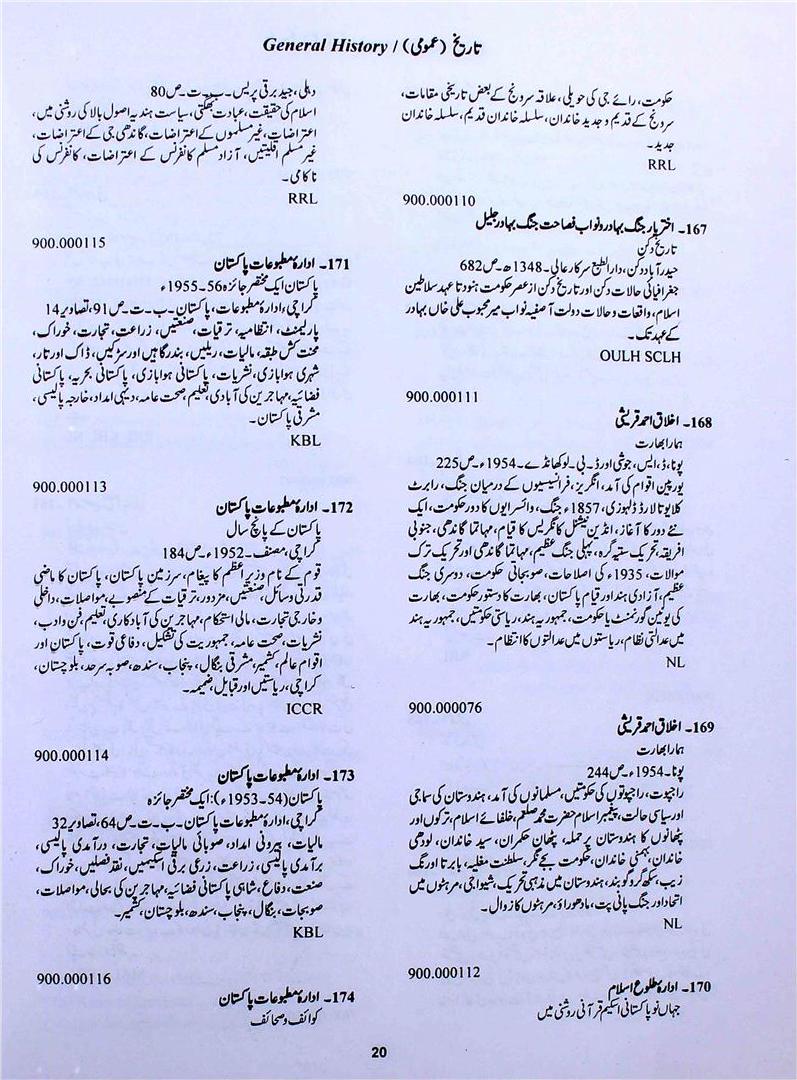 تاریخ (عمومی) / General History
حکومت، رائے جی کی حویلی، علاقہ سرونج کے بعض تاریخی مقامات،
سرونج کے قدیم و جدید خاندان، سلسلہ خاندان قدیم، سلسلہ خاندان
جدید۔
RRL
900.000110
167۔ اختر یار جنگ بہادر و نواب فصاحت جنگ بہادر جلیل
تاریخ دکن
حیدرآباد دکن، دار الطبع سرکار عالی۔ 1348ھ۔ ص 682
جغرافیائی حالات دکن اور تاریخ دکن از عصر حکومت ہنود تا عہد سلاطین
اسلام، واقعات و حالات دولت آصفیہ نواب میر محبوب علی خاں بہادر
کے عہد تک۔
OULH SCLH
900.000111
168۔ اخلاق احمد قریشی
ہمارا بھارت
پونا، ڈ، ایس، جوشی اور ڈ۔ بی۔ لوکھانڈے۔ 1954ء۔ ص 225
یورپین اقوام کی آمد، انگریز، فرانسیسیوں کے درمیان جنگ، رابرٹ
کلایو تا لارڈ ڈلہوزی، 1857ء جنگ، وائسرایوں کا دور حکومت، ایک
نئے دور کا آغاز، انڈین نیشنل کانگریس کا قیام، مہاتما گاندھی، جنوبی
افریقہ، تحریک ستیہ گرہ، پہلی جنگ عظیم، مہاتما گاندھی اور تحریک ترک
موالات، 1935ء کی اصلاحات، صوبجاتی حکومت، دوسری جنگ
عظیم، آزادی ہند اور قیام پاکستان، بھارت کا دستور حکومت، بھارت
کی یونین گورنمنٹ یا حکومت، جمہوریہ ہند، ریاستی حکومتیں، جمہوریہ ہند
میں عدالتی نظام، ریاستوں میں عدالتوں کا انتظام۔
NL
900.000076
169۔ اخلاق احمد قریشی
ہمارا بھارت
پونا۔ 1954ء۔ ص 244
راجپوت، راجپوتوں کی حکومتیں، مسلمانوں کی آمد، ہندوستان کی سماجی
اور سیاسی حالت، پیغمبر اسلام حضرت محمد صلعم، خلفائے اسلام، ترکوں اور
پٹھانوں کا ہندوستان پر حملہ، پٹھان حکمران، سید خاندان، لودھی
خاندان، بہمنی خاندان، حکومت بجے نگر، سلطنت مغلیہ، بابر تا اورنگ
زیب، سکھ گرو گوبند، ہندوستان میں مذہبی تحریک، شیواجی، مرہٹوں میں
اتحاد اور جنگ پانی پت، مادھوراؤ، مرہٹوں کا زوال۔
NL
900.000112
170۔ ادارۂ طلوع اسلام
جہان نو پاکستانی اسکیم قرآنی روشنی میں
دہلی، جید برقی پریس۔ ب۔ ت۔ ص 80
اسلام کی حقیقت، عبادت بھگتی، سیاست ہندیہ اصول بالا کی روشنی میں،
اعتراضات، غیر مسلموں کے اعتراضات، گاندھی جی کے اعتراضات،
غیر مسلم اقلیتیں، آزاد مسلم کانفرنس کے اعتراضات، کانفرنس کی
ناکامی۔
RRL
900.000115
171۔ ادارۂ مطبوعات پاکستان
پاکستان ایک مختصر جائزہ 56۔ 1955ء
کراچی، ادارۂ مطبوعات، پاکستان۔ ب۔ ت۔ ص 91، تصاویر 14
پارلیمنٹ، انتظامیہ، ترقیات، صنعتیں، زراعت، تجارت، خوراک،
محنت کش طبقہ، مالیات، ریلیں، بندرگاہیں اور سڑکیں، ڈاک اور تار،
شہری ہوابازی، نشریات، پاکستانی ہوابازی، پاکستانی بحریہ، پاکستانی
فضائیہ، مہاجرین کی آبادی، تعلیم، صحت عامہ، دیہی امداد، خارجہ پالیسی،
مشرقی پاکستان۔
KBL
900.000113
172۔ ادارۂ مطبوعات پاکستان
پاکستان کے پانچ سال
کراچی، مصنف۔ 1952ء۔ ص 184
قوم کے نام وزیر اعظم کا پیغام، سرزمین پاکستان، پاکستان کا ماضی
قدرتی وسائل، صنعتیں، مزدور، ترقیات کے منصوبے، مواصلات، داخلی
و خارجی تجارت، مالی استحکام، مہاجرین کی آبادکاری، تعلیم، فن و ادب،
نشریات، صحت عامہ، جمہوریت کی تشکیل، دفاعی قوت، پاکستان اور
اقوام عالم، کشمیر، مشرقی بنگال، پنجاب، سندھ، صوبہ سرحد، بلوچستان،
کراچی، ریاستیں اور قبایل، ضمیمہ۔
ICCR
900.000114
173۔ ادارۂ مطبوعات پاکستان
پاکستان (54۔ 1953ء): ایک مختصر جائزہ
کراچی، ادارۂ مطبوعات پاکستان۔ ب۔ ت۔ ص 64، تصاویر 32
مالیات، بیرونی امداد، صوبائی مالیات، تجارت، درآمدی پالیسی،
برآمدی پالیسی، زراعت، زرعی برقی اسکیمیں، نقد فصلیں، خوراک،
صنعت، دفاع، شاہی پاکستانی فضائیہ، مہاجرین کی بحالی، مواصلات،
صوبجات، بنگال، پنجاب، سندھ، بلوچستان، کشمیر۔
KBL
900.000116
174۔ ادارۂ مطبوعات پاکستان
کوائف و صحائف
20